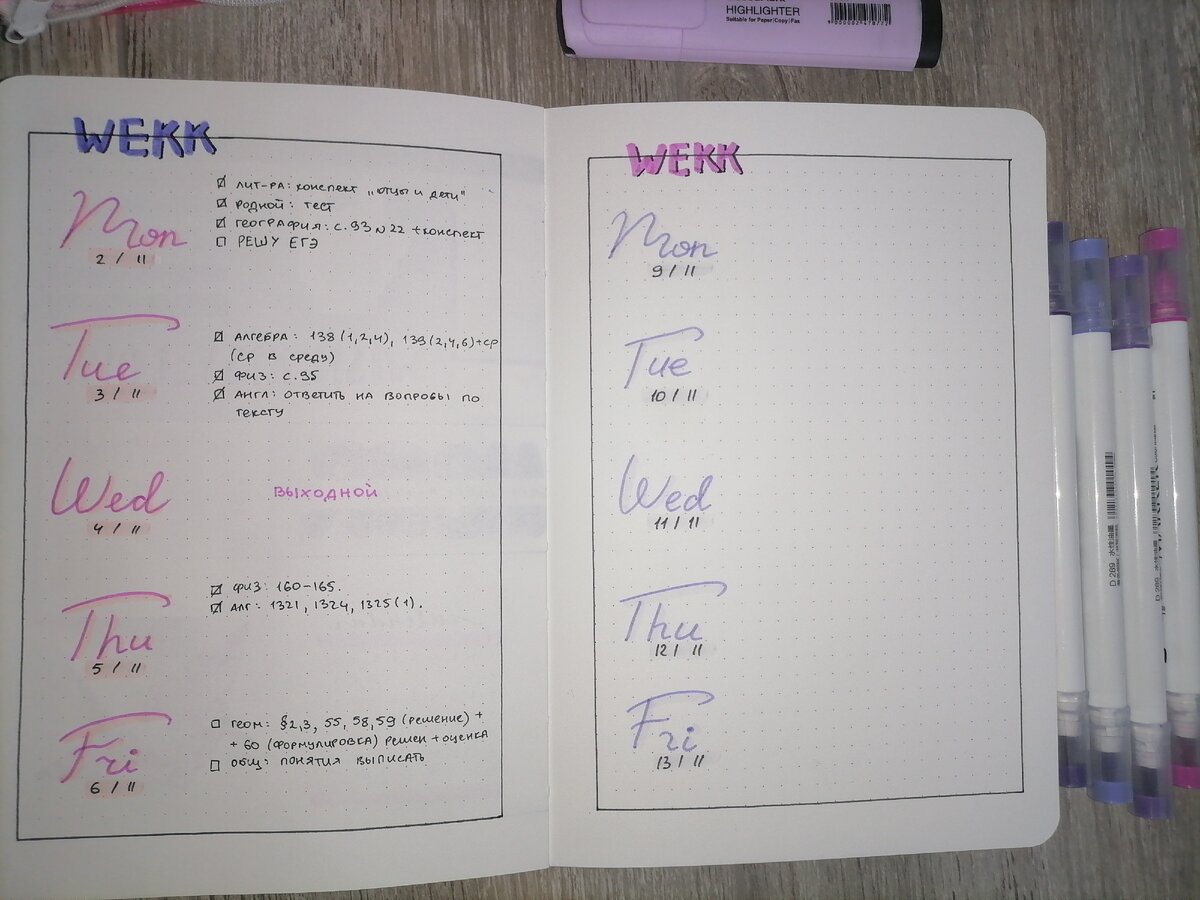 HIGHLIGHTER
Suitable for Paper/Copy/Fax
WEKK
Mon
2 / 11
ЛИТ-РА: КОНСПЕКТ „ОТЦЫ И ДЕТИ"
РОДНОЙ: ТЕСТ
ГЕОГРАФИЯ: С. 93 №22 + КОНСПЕКТ
РЕШУ ЕГЭ
Tue
3 / 11
АЛГЕБРА: 138 (1,2,4), 139 (2,4,6) + СР
(СР В СРЕДУ)
ФИЗ: С. 95
АНГЛ: ОТВЕТИТЬ НА ВОПРОВЫ ПО
ТЕКСТУ
Wed
4 / 11
ВЫХОДНОЙ
Thu
5 / 11
ФИЗ: 160-165.
АЛГ: 1321, 1324, 1325 (1).
Fri
6 / 11
ГЕОМ: §2,3, 55, 58,59 (РЕШЕНИЕ) +
+ 60 (ФОРМУЛИРОВКА) РЕШЕН + ОЦЕНКА
ОБЩ: ПОНЯТИЯ ВЫПИСАТЬ
WEKK
Mon
9 / 11
Tue
10 / 11
Wed
11 / 11
Thu
12 / 11
Fri
13 / 11
D 289 水性油墨
D 289 水性油墨